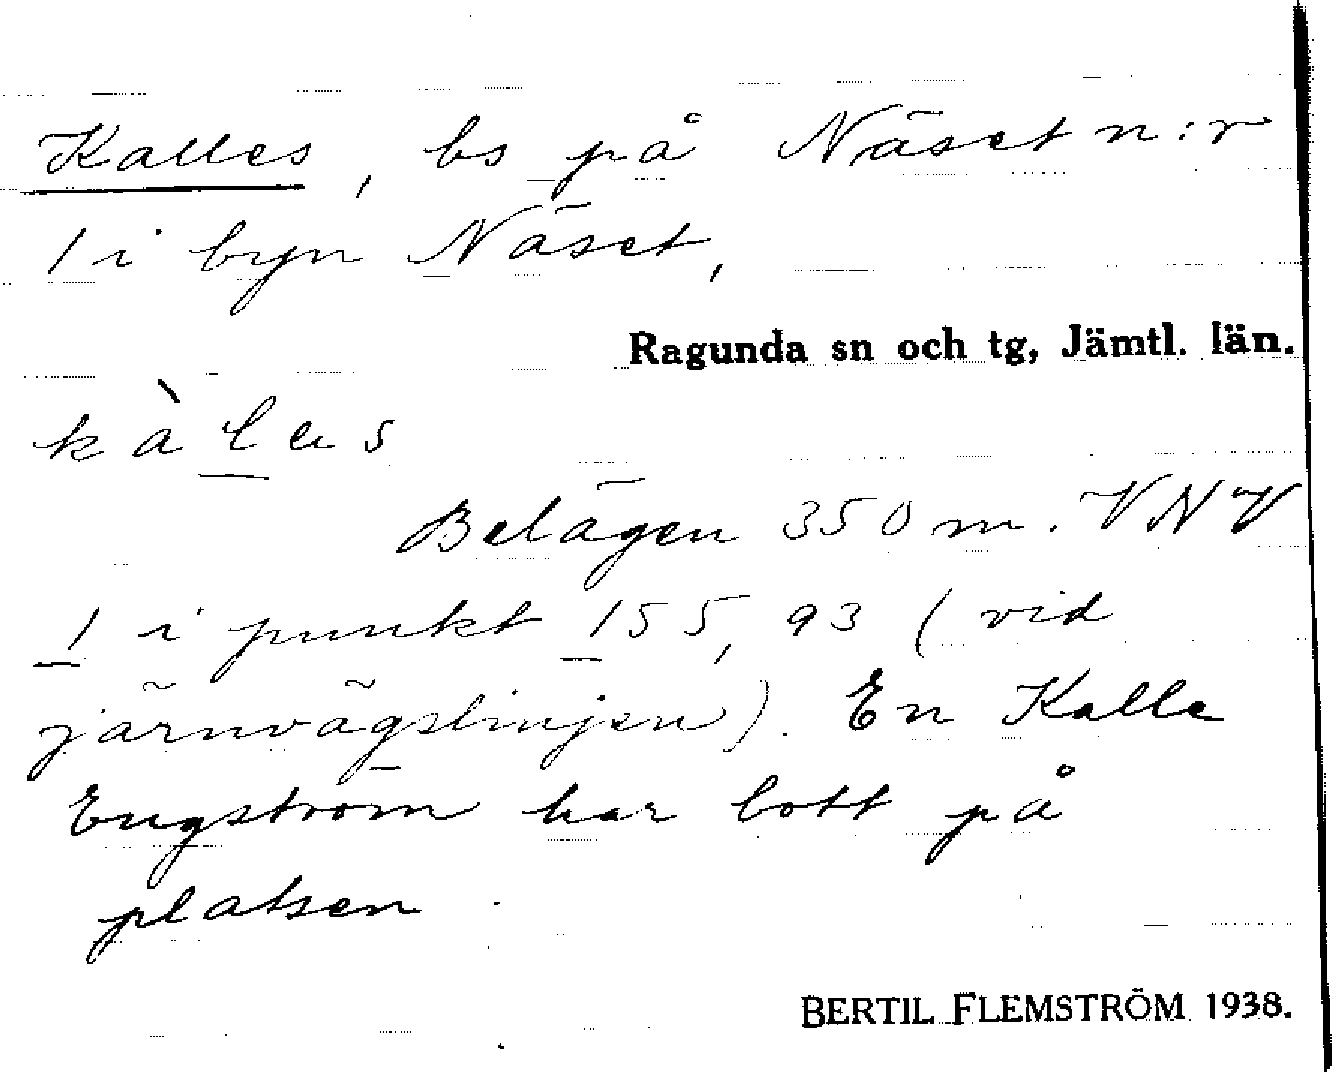 Kalles, bs på Näset n:r
1 i byn Näset,
Ragunda sn och tg, Jämtl. län.
kàlas
Belägen 350 m. VNV
1 i punkt 155,93 (vid
järnvägslinjen). En Kalle
Engström har bott på
platsen.
BERTIL FLEMSTRÖM 1938.